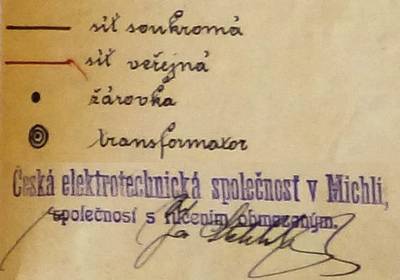 síť soukromá
síť veřejná
žárovka
transformator
Česká elektrotechnická společnosť v Michli,
společnosť s ručením obmezeným.